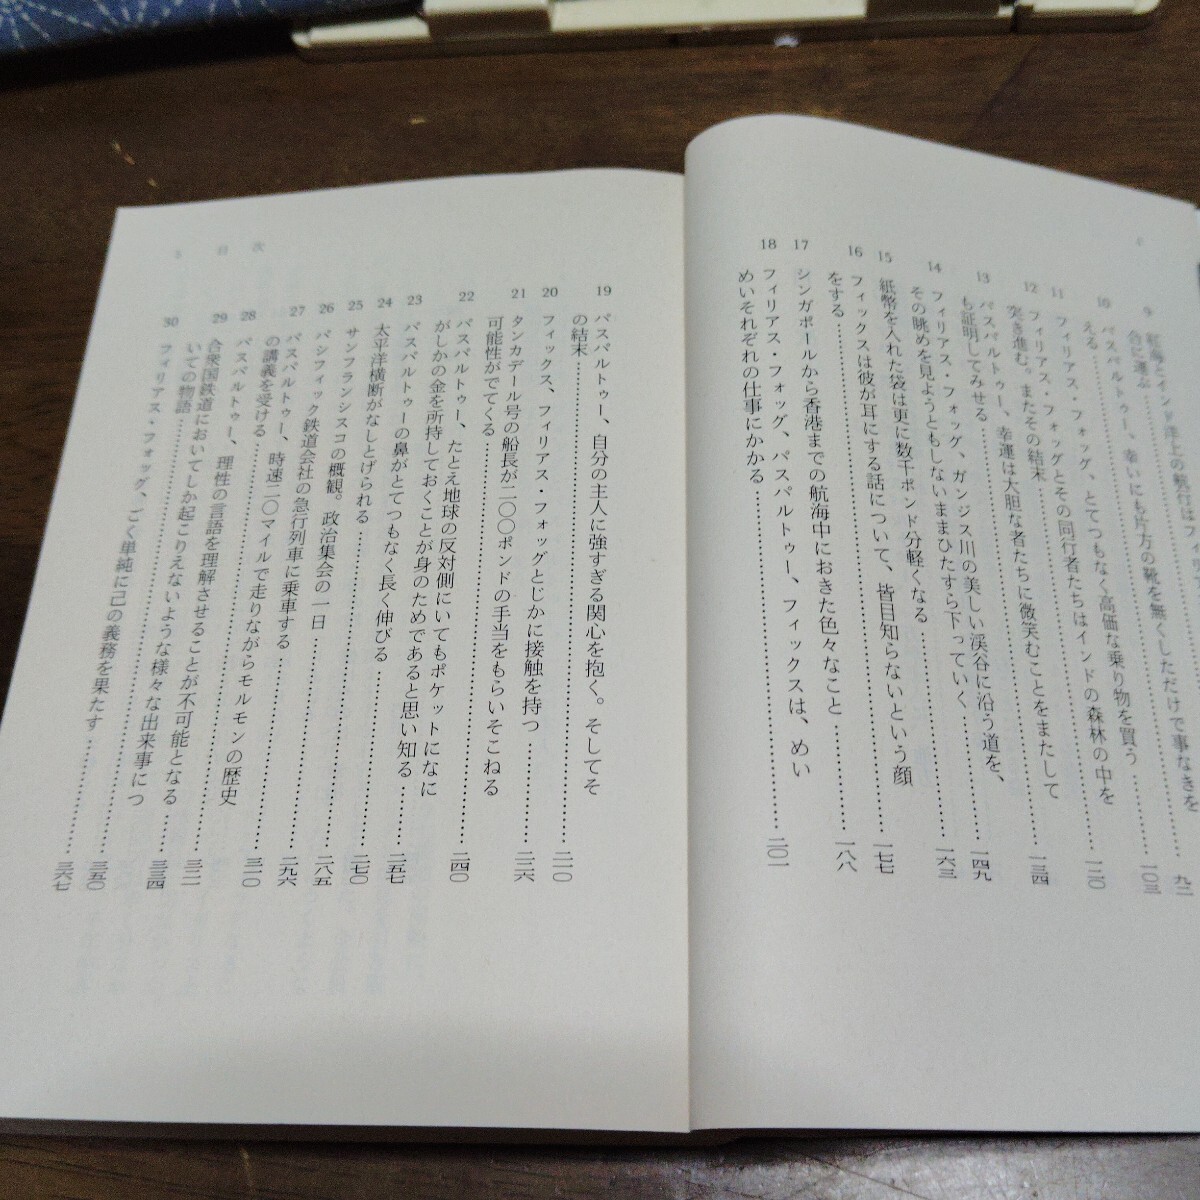 9 紅海とインド洋上の航行はフィ
合に運ぶ……………………九二
10 パスパルトゥー、幸いにも片方の靴を無くしただけで事なきを
える……………………一〇三
11 フィリアス・フォッグ、とてつもなく高価な乗り物を買う……一二〇
12 フィリアス・フォッグとその同行者たちはインドの森林の中を
突き進む。またその結末……………………一三四
13 パスパルトゥー、幸運は大胆な者たちに微笑むことをまたして
も証明してみせる……………………一四九
14 フィリアス・フォッグ、ガンジス川の美しい渓谷に沿う道を、
その眺めを見ようともしないままひたすら下っていく……一六三
15 紙幣を入れた袋は更に数千ポンド分軽くなる……………………一七七
16 フィックスは彼が耳にする話について、皆目知らないという顔
をする……………………一八八
17 シンガポールから香港までの航海中におきた色々なこと……
18 フィリアス・フォッグ、パスパルトゥー、フィックスは、めい
めいそれぞれの仕事にかかる……………………二〇一
19 パスパルトゥー、自分の主人に強すぎる関心を抱く。そしてそ
の結末……………………二一〇
20 フィックス、フィリアス・フォッグとじかに接触を持つ……二二六
21 タンカデール号の船長が二〇〇ポンドの手当をもらいそこねる
可能性がでてくる……………………二四〇
22 パスパルトゥー、たとえ地球の反対側にいてもポケットになに
がしかの金を所持しておくことが身のためであると思い知る……二五七
23 パスパルトゥーの鼻がとてつもなく長く伸びる……………………二七〇
24 太平洋横断がなしとげられる……………………二八五
25 サンフランシスコの概観。政治集会の一日……………………二九六
26 パシフィック鉄道会社の急行列車に乗車する……………………三一〇
27 パスパルトゥー、時速二〇マイルで走りながらモルモンの歴史
の講義を受ける……………………三二一
28 パスパルトゥー、理性の言語を理解させることが不可能となる……三三四
29 合衆国鉄道においてしか起こりえないような様々な出来事につ
いての物語……………………三五〇
30 フィリアス・フォッグ、ごく単純に己の義務を果たす……三六七
5 目次